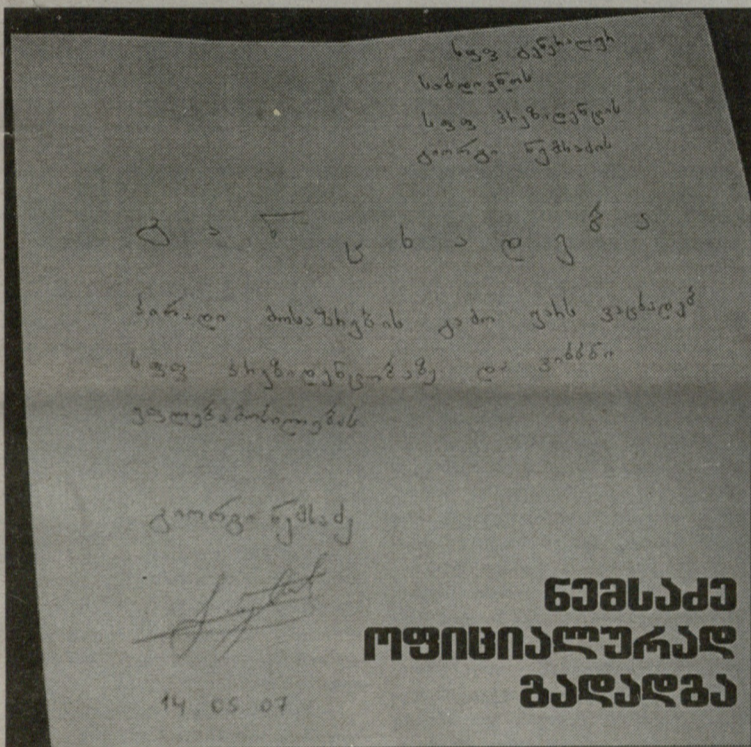 სფფ გენერალურ
მდივანს
სფფ პრეზიდენტის
გიორგი ნემსაძის
განცხადება
პირადი მოსაზრების გამო უარს ვაცხადებ
სფფ პრეზიდენტობაზე და ვიხსნი
უფლებამოსილებას
გიორგი ნემსაძე
14 05 07
ნემსაძე
ოფიციალურად
გადადგა